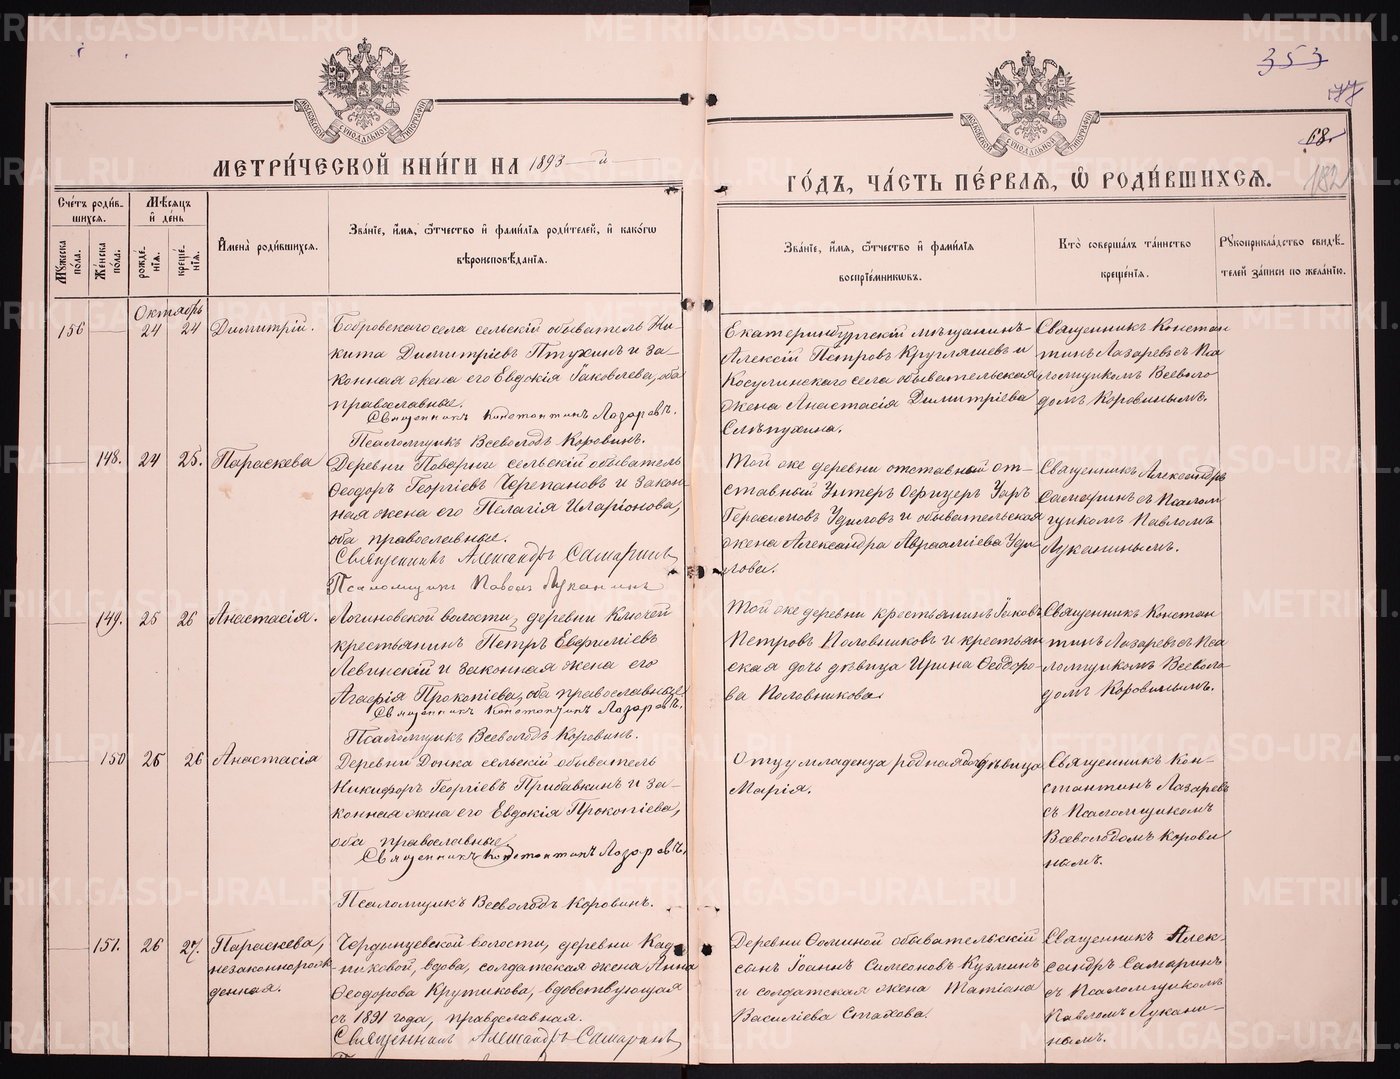 353
77
68.
182
МЕТРИ́ЧЕСКОЙ КНИ́ГИ НА 1893-й
ГО́ДЪ, ЧА́СТЬ ПЕ́РВАЯ, Ѡ҆ РОДИ́ВШИХСЯ.
Сче́тъ роди́в-
шихся.
Мѣсяцъ
и҆ де́нь
Мꙋ́жеска
по́ла.
Же́нска
по́ла.
рожде́-
нїя.
креще́-
нїя.
И҆мена̀ роди́вшихся.
Зва́нїе, и҆́мя, ѻ҆́тчество и҆ фами́лїя роди́телей, и҆ како́гѡ
вѣроисповѣ́данїя.
Зва́нїе, и҆́мя, ѻ҆́тчество и҆ фами́лїя
воспрїе́мниковъ.
Кто̀ соверша́лъ та́инство
креще́нїя.
Рꙋкоприкла́дство свидѣ́-
телей за́писи по жела́нїю.
Октябрь
156 24 24 Димитрій.
Бобровскаго села сельскій обыватель Ни-
кита Димитріевъ Птухинъ и за-
конная жена его Евдокія Іаковлева, оба
православные.
Священникъ Константинъ Лазаревъ.
Псаломщикъ Всеволодъ Коровинъ.
Екатеринбургскій мѣщанинъ
Алексій Петровъ Кругляшевъ и
Косулинскаго села обывательская
жена Анастасія Димитріева
Слѣпухина.
Священникъ Констан
тинъ Лазаревъ съ Пса
ломщикомъ Всеволо-
домъ Коровинымъ.
148. 24 25. Параскева
Деревни Поварни сельскій обыватель
Ѳеодоръ Георгіевъ Черепановъ и закон-
ная жена его Пелагія Иларіонова,
оба православные.
Священникъ Александръ Самаринъ
Псаломщикъ Павелъ Луканинъ
Той же деревни отставный от-
ставный Унтеръ Офицеръ Уаръ
Герасимовъ Удиловъ и обывательская
жена Александра Авраамiева Уди-
лова.
Священникъ Александръ
Самаринъ съ Псалом-
щикомъ Павломъ
Луканинымъ.
149. 25 26 Анастасія.
Логиновской волости, деревни Ключей
крестьянинъ Петръ Евфиміевъ
Левинскій и законная жена его
Агафія Прокопіева, оба православные
Священникъ Константинъ Лазаревъ.
Псаломщикъ Всеволодъ Коровинъ.
Той же деревни крестьянинъ Іаковъ
Петровъ Половниковъ и крестьян
ская дочь дѣвица Ирина Ѳеодоро-
ва Половникова.
Священникъ Констан-
тинъ Лазаревъ съ Пса-
ломщикомъ Всеволо-
домъ Коровинымъ.
150 25 26 Анастасія
Деревни Донка сельскій обыватель
Никифоръ Георгіевъ Прибавкинъ и за-
конная жена его Евдокія Прокопіева,
оба православные.
Священникъ Константинъ Лазаревъ.
Псаломщикъ Всеволодъ Коровинъ.
Отцу младенца родная дочь дѣвица
Марія.
Священникъ Кон-
стантинъ Лазаревъ
съ Псаломщикомъ
Всеволодомъ Корови
нымъ.
151. 26 27. Параскева,
незаконнорож-
денная.
Чердынцевской волости, деревни Кад-
никовой, вдова, солдатская жена Анна
Ѳеодорова Крутикова, вдовствующая
съ 1891 года, православная.
Священникъ Александръ Самаринъ
Деревни Ѳоминой обывательскій
сынъ Іоаннъ Симеоновъ Кузминъ
и солдатская жена Татіана
Василіева Стахова.
Священникъ Алек-
сандръ Самаринъ
съ Псаломщикомъ
Павломъ Лукани-
нымъ.
METRIKI.GASO-URAL.RU